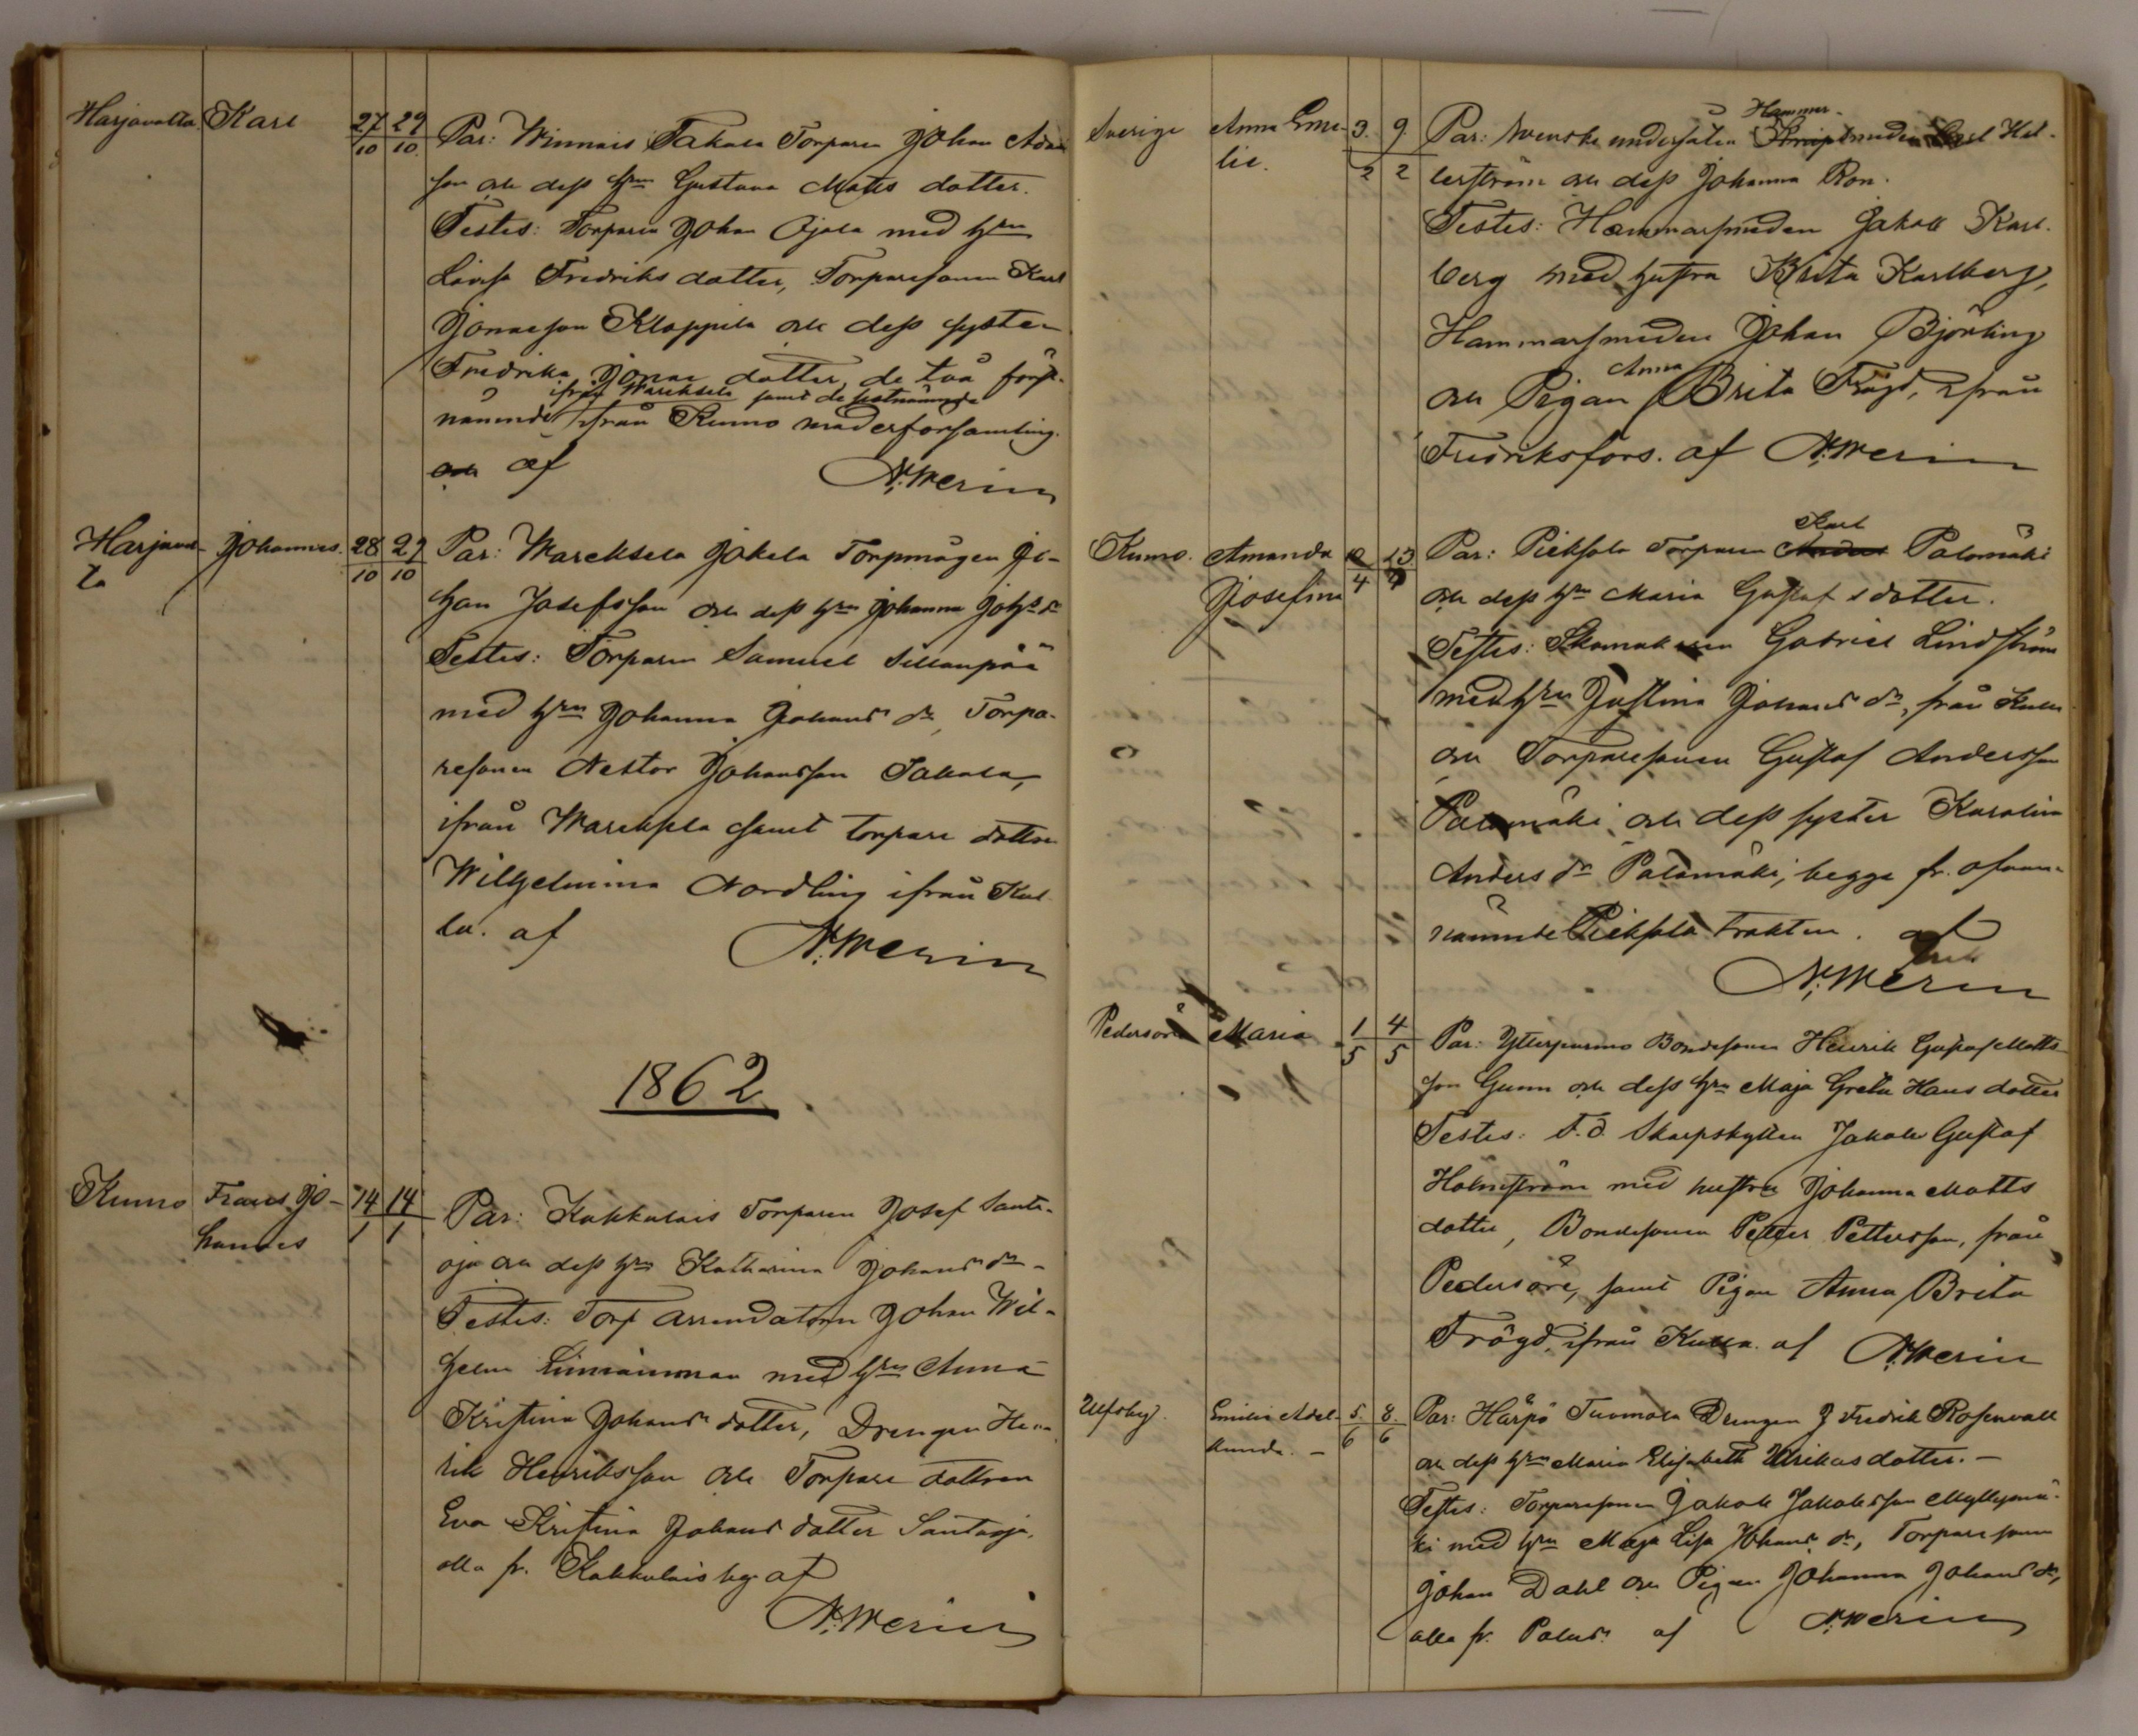 Harjavalta Karl 27/10 29/10 Par: Winnais Takala Torparen Johan Adam
son och dess hru Gustava Mats dotter.
Testes: Torparen Johan Ojala med hru
Lovisa Fredriks dotter, Torparesonen Karl
Jonasson Kloppila och dess syster
Fredrika Jonas dotter, de två förs-
ifrån Wareksela samt de sistnämnde
nämnde ifrån Kumo moderförsamling.
och af N. Merin
Harjaval- Johannes. 28/10 29/10 Par: Wareksela Jakela Torpmågen Jo-
ta
han Josefsson och dess hru Johanna Johs dr
Testes: Torparen Samuel Sillanpää
med hru Johanna Johans dr, Torpa-
resonen Nestor Johansson Takala,
ifrån Wareksela samt torpare dottren
Wilhelmina Nordling ifrån Kul-
la. af N. Merin
1862
Kumo Frans Jo- 14/1 14/1 Par: Kakkulais Torparen Josef Santa-
hannes
oja och dess hru Katharina Johans dr -
Testes: Torp arrendatorn Johan Wil-
helm Linnainman med hru Anna
Kristina Johans dotter, Drengen Hen-
rik Henriksson och Torpare dottren
Eva Kristina Johans dotter Santaoja,
alla fr. Kakkulais by. af
N. Merin
Sverige Anna Eme- 3/2 9/2 Par: Svenske undersåten Hammer- smeden Carl Hel-
lie.
lerström och dess Johanna Ron.
Testes: Hammarsmeden Jakob Karl-
berg med hustru Brita Karlberg,
Hammarsmeden Johan Björling
och Pigan Anna Brita Frögd, ifrån
Fredriksfors. af N. Merin
Kumo. Amanda 12/4 13/4 Par: Pieksala Torparen Karl Palomäki
Josefina
och dess hru Maria Gustafsdotter.
Testes: Skomakaren Gabriel Lindström
med hru Justina Johans dr, från Kulla
och Torparesonen Gustaf Andersson
Palomäki och dess syster Karolina
Anders dr Palomäki, begge fr. ofvan-
nämnde Pieksala trakten. af
N. Merin
Pedersöre Maria 1/5 4/5 Par: Ytterpurmo Bondesonen Henrik Gustaf Matts-
son Gunn och dess hru Maja Greta Hans dotter
Testes: F.d. Skarpskytten Jakob Gustaf
Holmström med hustru Johanna Matts
dotter, Bondesonen Petter Pettersson, från
Pedersöre, samt Pigan Anna Brita
Frögd, ifrån Kulla. af N. Merin
Ulfsby. Emilia Adel- 5/6 8/6 Par: Härpö Tuomola Drengen J Fredrik Rosenvall
kunda. -
och dess hru Maria Elisabeth Ulrikas dotter. -
Testes: Torparesonen Jakob Jakobsson Myllymä-
ki med hru Maja Lisa Johans dr, Torparesonen
Johan Dahl och Pigan Johanna Johans dr,
alla fr. Palus. af N. Merin